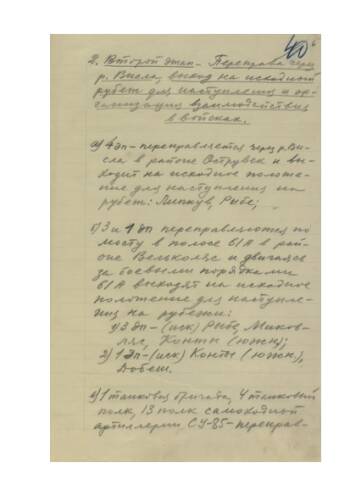 40
2. Второй этап – Переправа через
р. Висла, выход на исходный
рубеж для наступления и ор-
ганизация взаимодействия
в войсках.
а) 4 дп – переправляется через р. Ви-
сла в районе Острувек и вы-
ходит на исходное положе-
ние для наступления на
рубеж: Липкув, Рыбе;
б) 3 и 1 дп переправляются по
мосту в полосе 61А в рай-
оне Вельколяс и двигаясь
за боевыми порядками
61А выходят на исходное
положение для наступле-
ния на рубежи:
1) 3 дп – (иск) Рыбе, Миков-
ляс, Конты (южн);
2) 1 дп – (иск) Конты (южн),
Добеш.
в) 1 танковая бригада, 4 танковый
полк, 13 полк самоходной
артиллерии СУ-85 – переправ-